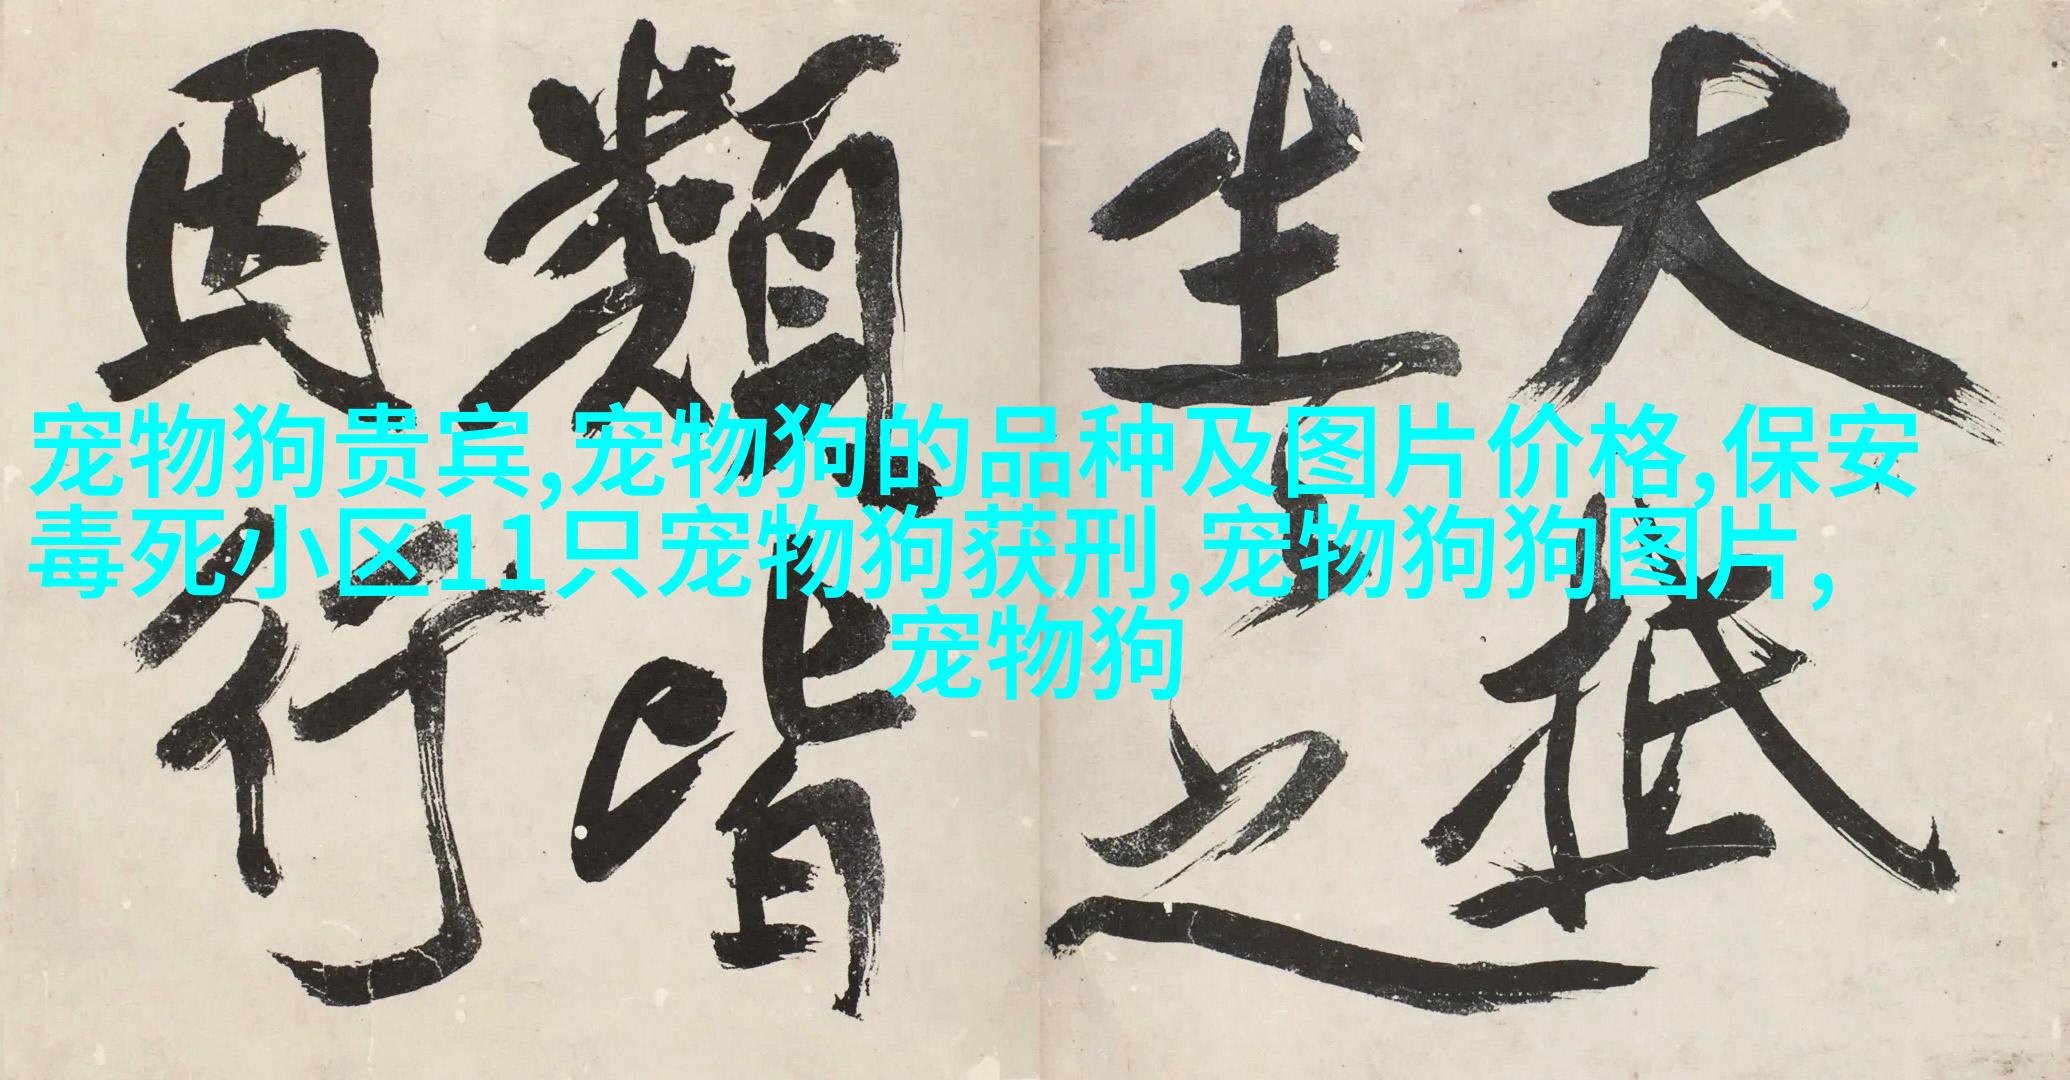 宠物狗贵宾,宠物狗的品种及图片价格,保安
毒死小区11只宠物狗获刑,宠物狗狗图片,
宠物狗
大抵
生之
類皆
因行